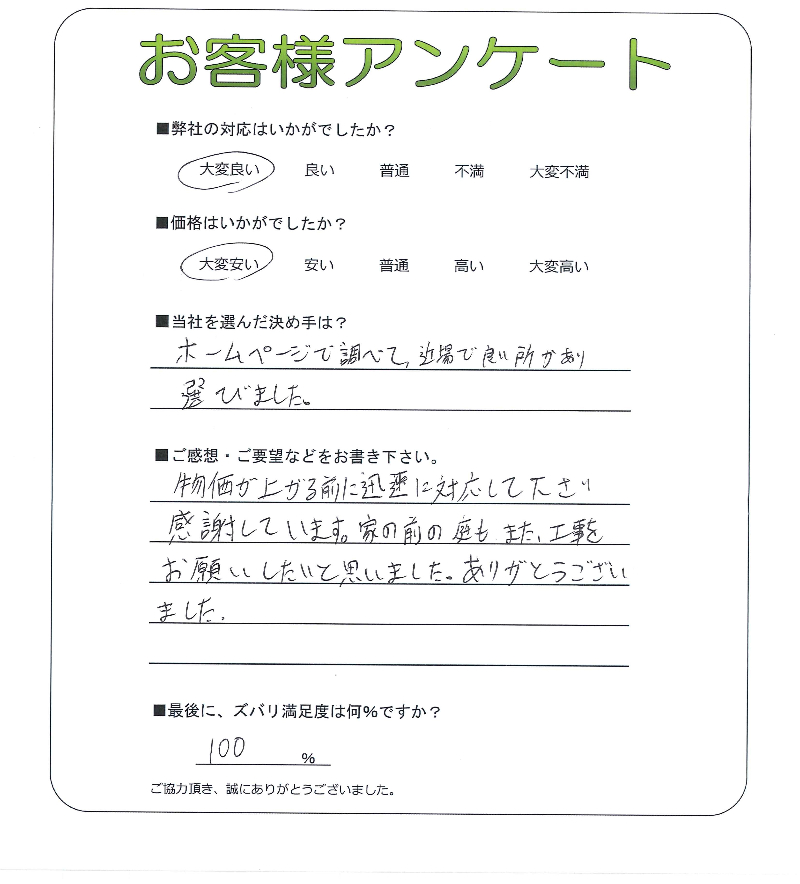 お客様アンケート
■弊社の対応はいかがでしたか？
大変良い 良い 普通 不満 大変不満
■価格はいかがでしたか？
大変安い 安い 普通 高い 大変高い
■当社を選んだ決め手は？
ホームページで調べて、近場で良い所があり
選びました。
■ご感想・ご要望などをお書き下さい。
物価が上がる前に迅速に対応して下さり
感謝しています。家の前の庭もまた、工事を
お願いしたいと思いました。ありがとうござい
ました。
■最後に、ズバリ満足度は何%ですか？
100 %
ご協力頂き、誠にありがとうございました。